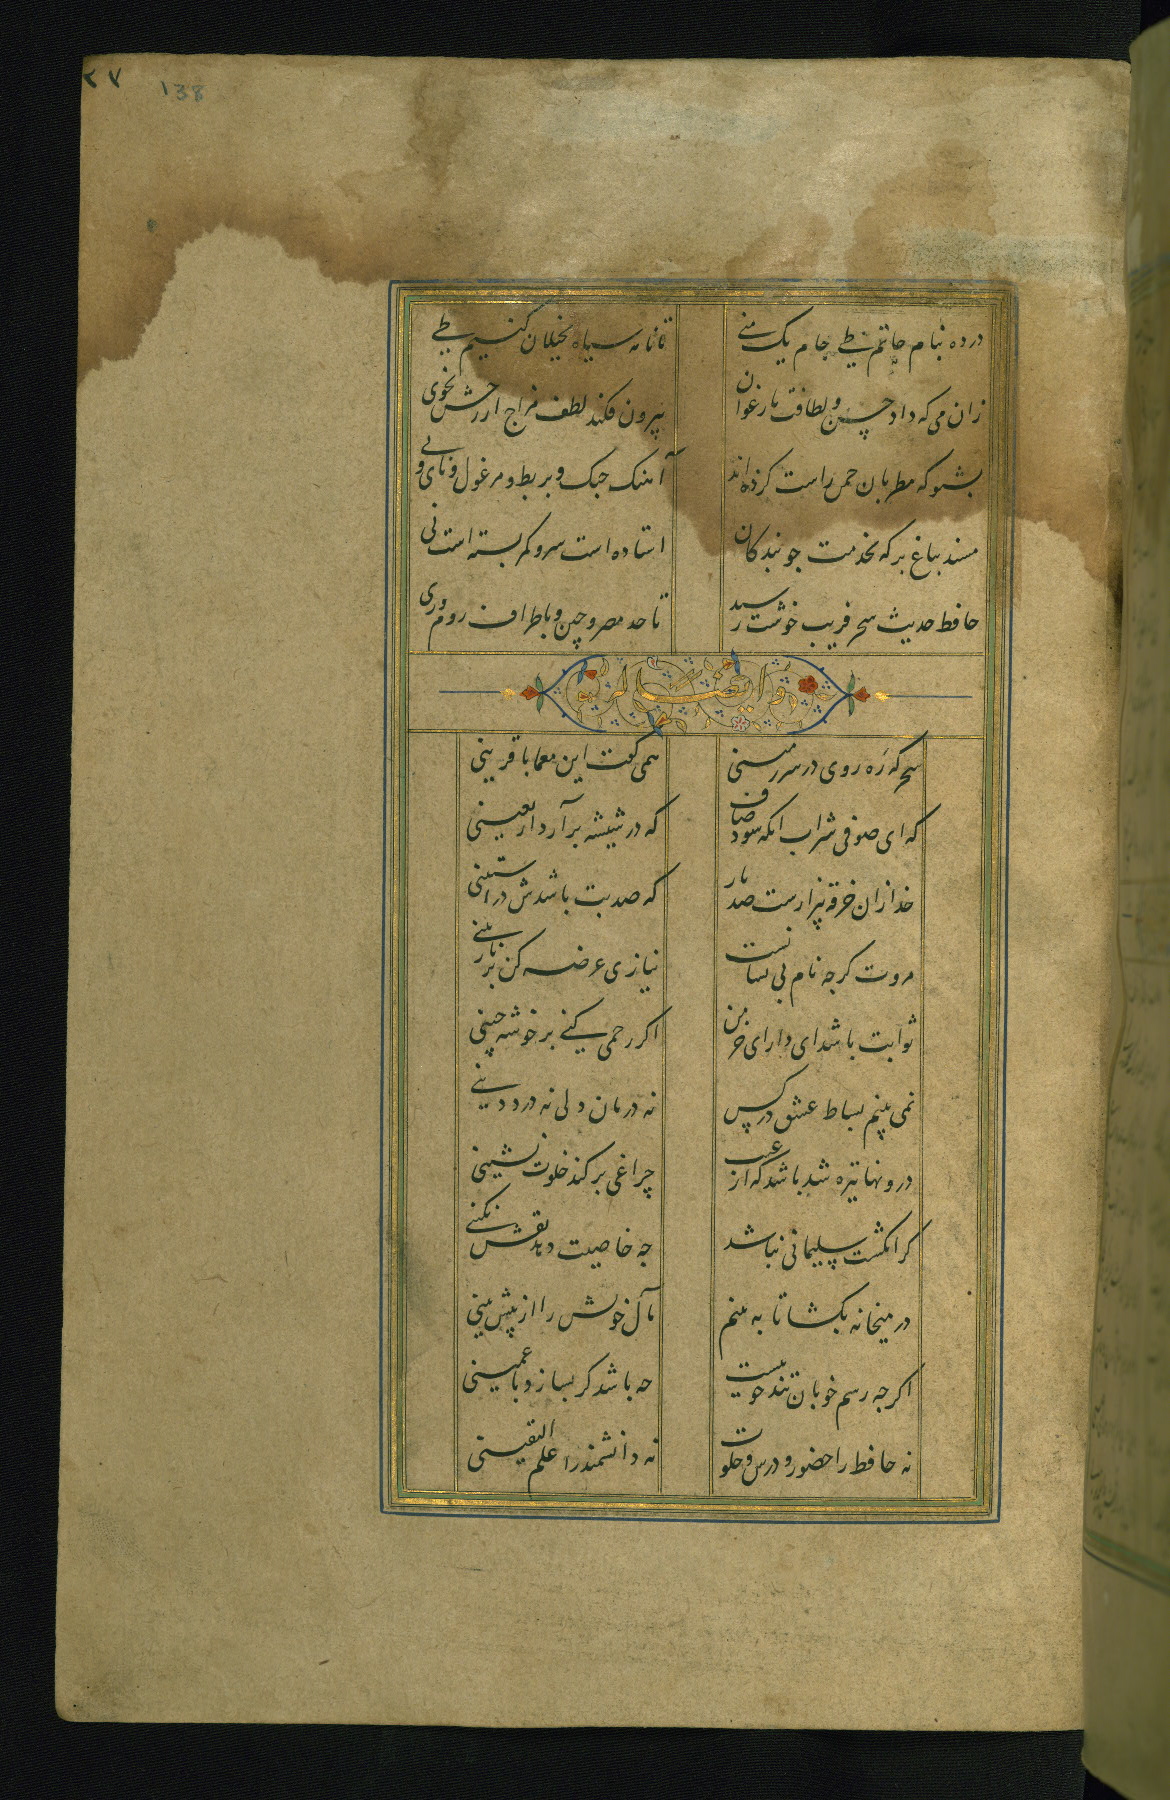 ۲۷
138
در ده بنام حاتم طی جام یک منی تا نامه سیاه بخیلان کنیم طی
زان می که داد حسن و لطافت بارغوان بیرون فکند لطف مزاج از رخش بخوی
بشنو که مطربان چمن راست کرده‌اند آهنگ چنک و بربط و مرغول و نای و نی
مسند بباغ بر که بخدمت چو بندکان استاده است سرو و کمر بسته است نی
حافظ حدیث سحر فریب خوشت رسید تا حد مصر و چین و باطراف روم و ری
و ایضا له
سحرکه ره روی در سرزمینی همی گفت این معما با قرینی
که ای صوفی شراب انکه شود صاف که در شیشه برآرد اربعینی
خدا زان خرقه بیزارست صد بار که صد بت باشدش در استینی
مروت کرچه نام بی نشانست نیازی عرضه کن بر نازنینی
ثوابت باشد ای دارای خرمن اکر رحمی کنی بر خوشه چینی
نمی بینم بساط عشق در کس نه درمان دلی نه درد دینی
درونها تیره شد باشد که از غیب چراغی برکند خلوت نشینی
کر انکشت سلیمانی نباشد چه خاصیت دهد نقش نکینی
در میخانه بکشا تا به بینم مآل خویش را از پیش بینی
اکرچه رسم خوبان تندخوییست چه باشد کر بسازد با غمینی
نه حافظ را حضور و درس و خلوت نه دانشمند را علم الیقینی